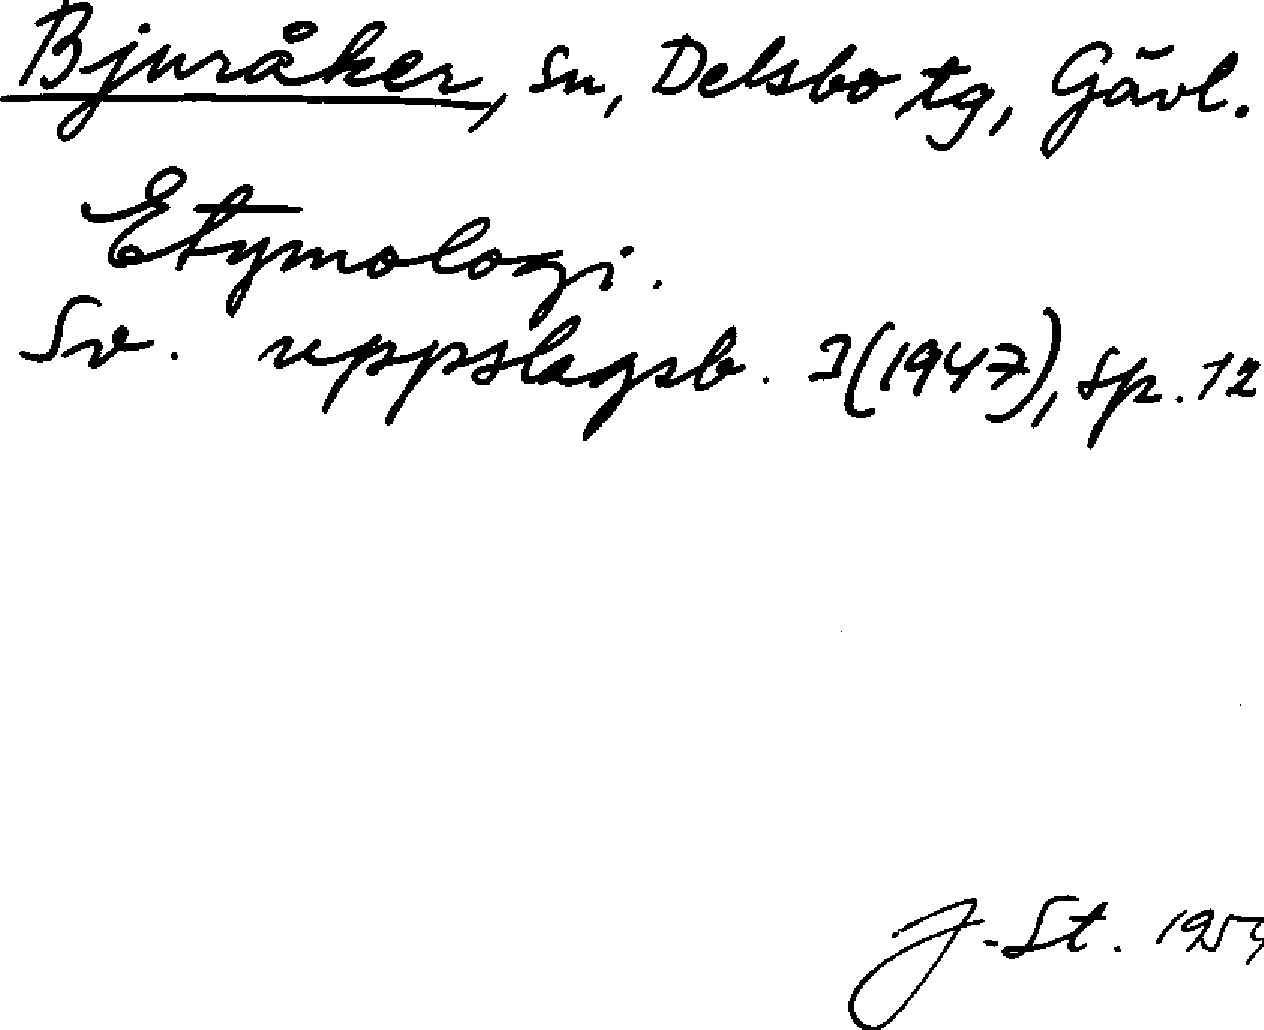 Bjuråker, sn, Delsbo tg, Gävl.
Etymologi.
Sv. uppslagsb. 3(1947), sp. 12
J-St. 1953